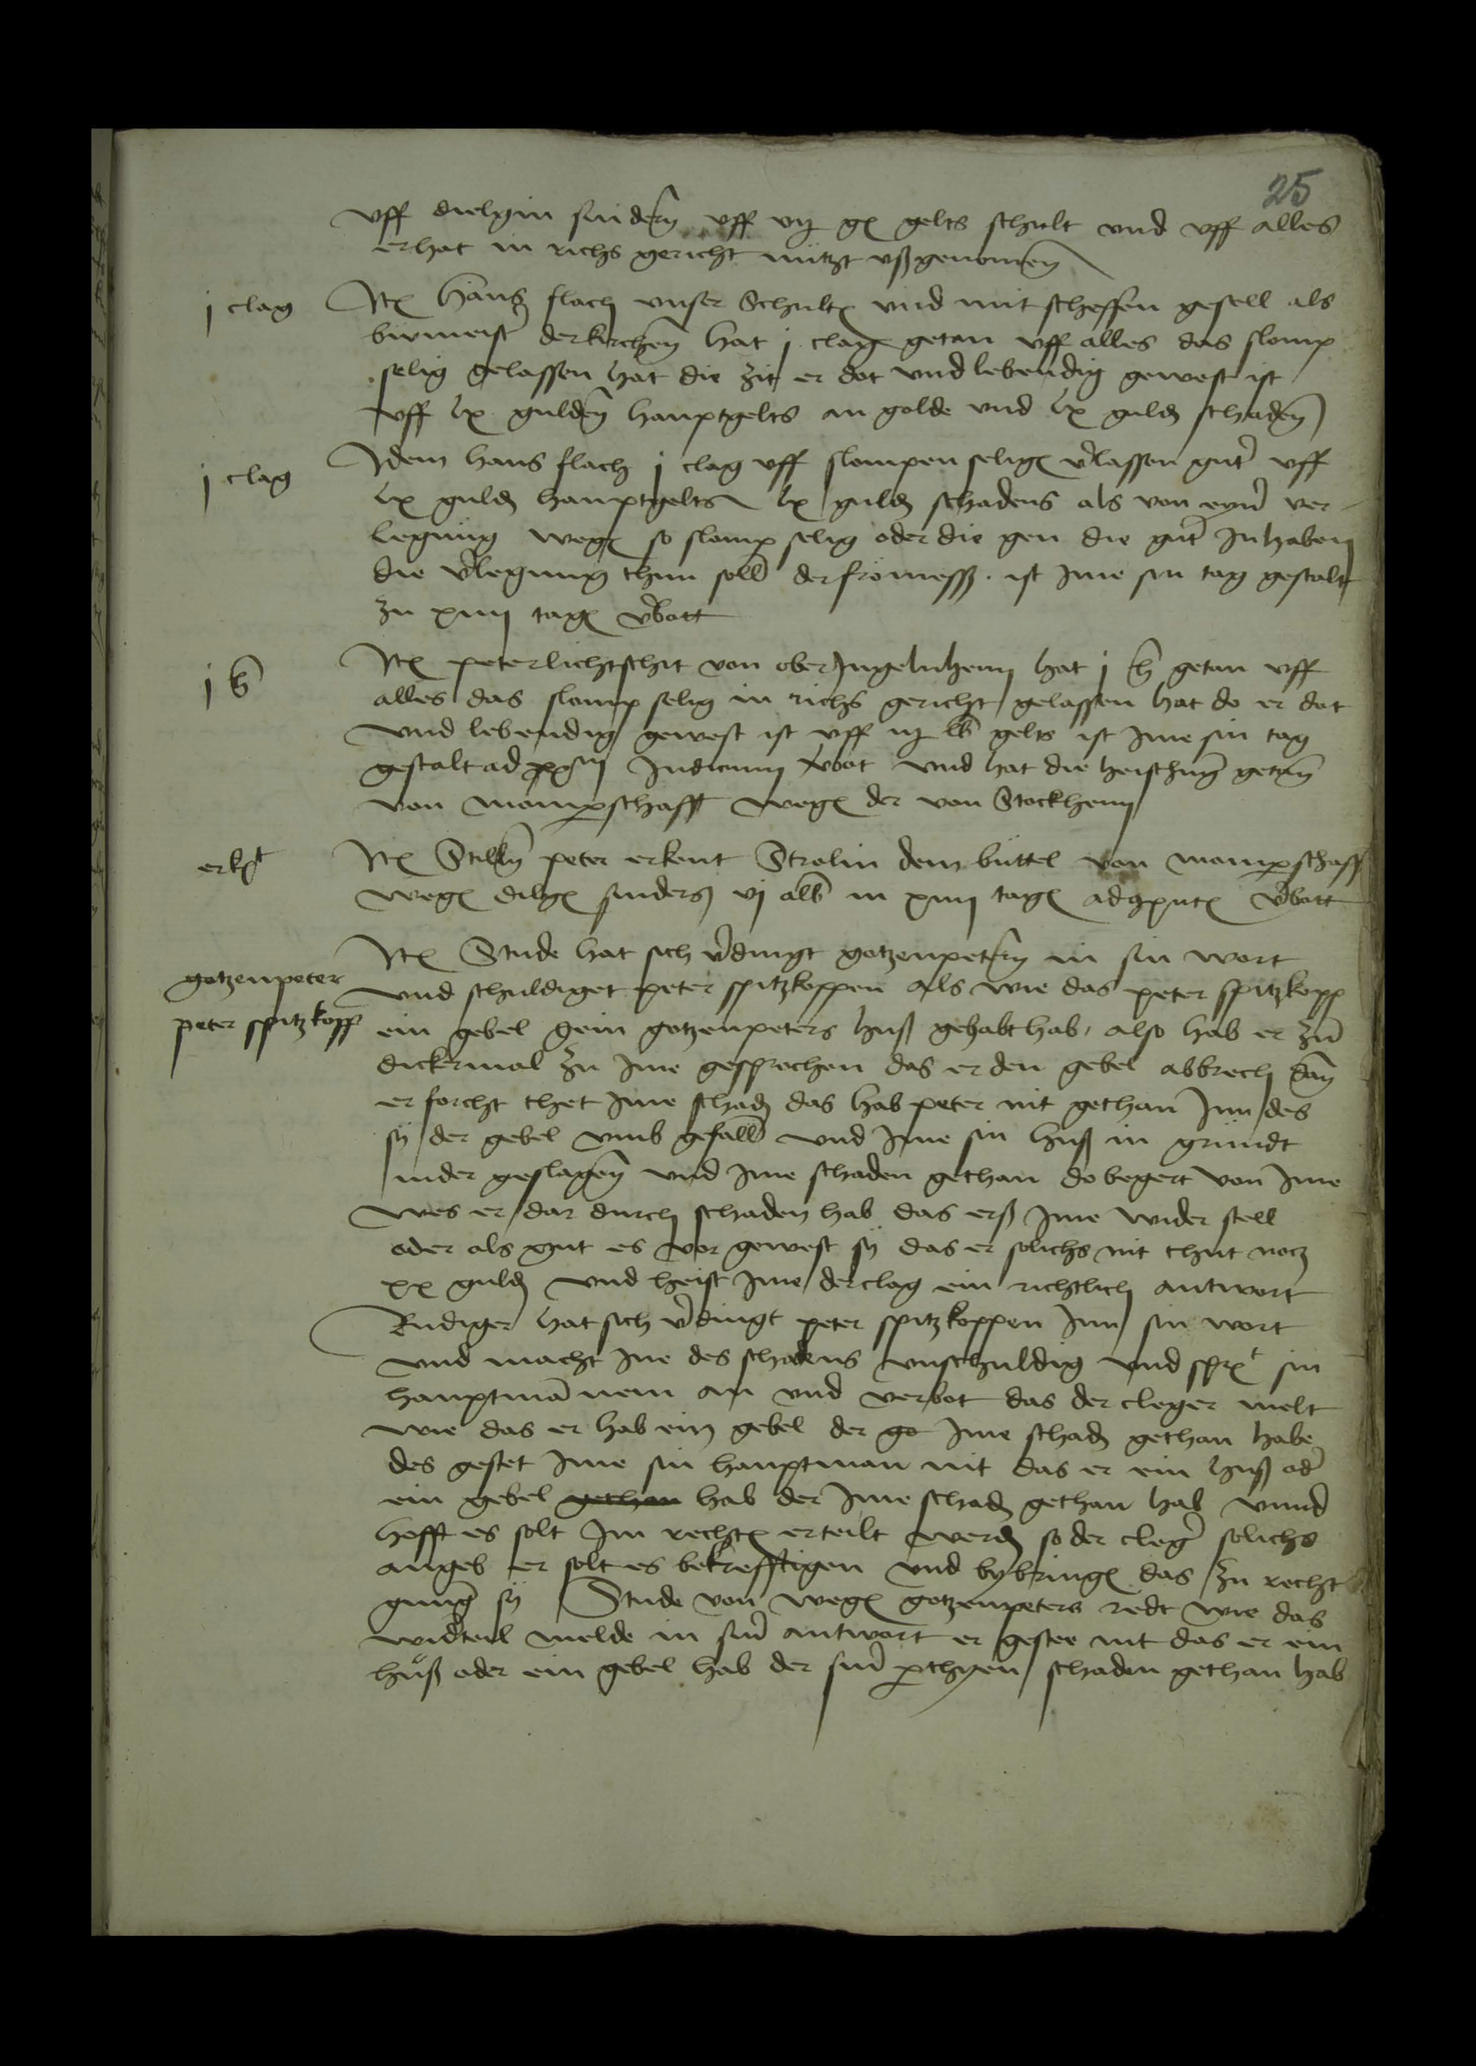 25
uff dielgin snidern uff vij g gelts schult und uff alles
er hat in richs gericht nutzt ußgenomen
j clag
It Hans flach unser Schults und mit scheffen gesell als
bumeist der kirchen hat j clage getan uff alles das slomp
selig gelassen hat die zit er dot und lebendig gewest ist
uff lx gulden hauptgelts an golde und lx guld schaden
j clag
Idem hans flach j clag uff slompen selig vlassen gut uff
lx guld hauptgelts lx guld schadens als von eyn ver-
legung weg so slomp selig oder die gen die gut Inhaben
die vlegung thun soll der fromesß. ist Ime sin tag gestalt
zu xiiij tag vbott
j h
It peter lichtschit von ober Ingelnheim hat j h getan uff
alles das slomp selig in richs gericht gelassen hat do er dot
und lebendig gewest ist uff iij lb gelts ist Ime sin tag
gestalt ad Judicium vbot und hat die heischung getan
von momperschafft weg der von Stockheim
erkt
It peter erkent Strolin dem büttel von momperschaff
weg dilg sniders vj alb in xiiij tag vbott
gotzenpeter
peter spitzkopff
It Stude hat sich vdingt gotzenpetern in sin wort
und schuldiget peter spitzkoppen als wie das peter spitzkopp
ein gebel gein gotzenpeters huß gehabt hab, also hab er zu
dickermal zu Ime gesprochen das er den gebel abbrech dan
er forcht thet Ime schad das hab peter nit gethan Inn des
sij der gebel umb gefall und Ime sin huß in gründt
nider geslagen und Ime schaden gethan do begert von Ime
wes er dar durch schaden hab das erß Ime wider stell
oder als gut es vor gewest sij das er solichs nit thut noch
xx guld und heist Ime der clag ein richtlich antwort
Rudiger hat sich vdingt peter spitzkoppen Inn sin wort
und macht Ine des schadens unschuldig und sprt sin
hauptman nem an und verbot das der cleger melt
wie das er hab ein gebel der go Ime schad gethan habe
des gestet Ime sin hauptman nit das er ein huß od
ein gebel gethan hab der Ime schad gethan hab unnd
hofft es solt Im recht erteilt werd so der cleg solichs
angeb er solt es bekrefftigen und bybring das zu recht
gnung sij Stude von weg gotzenpeters redt wie das
widteil melde in sin antwort er gestee nit das er ein
huß oder ein gebel hab der sin pthyen schaden gethan hab